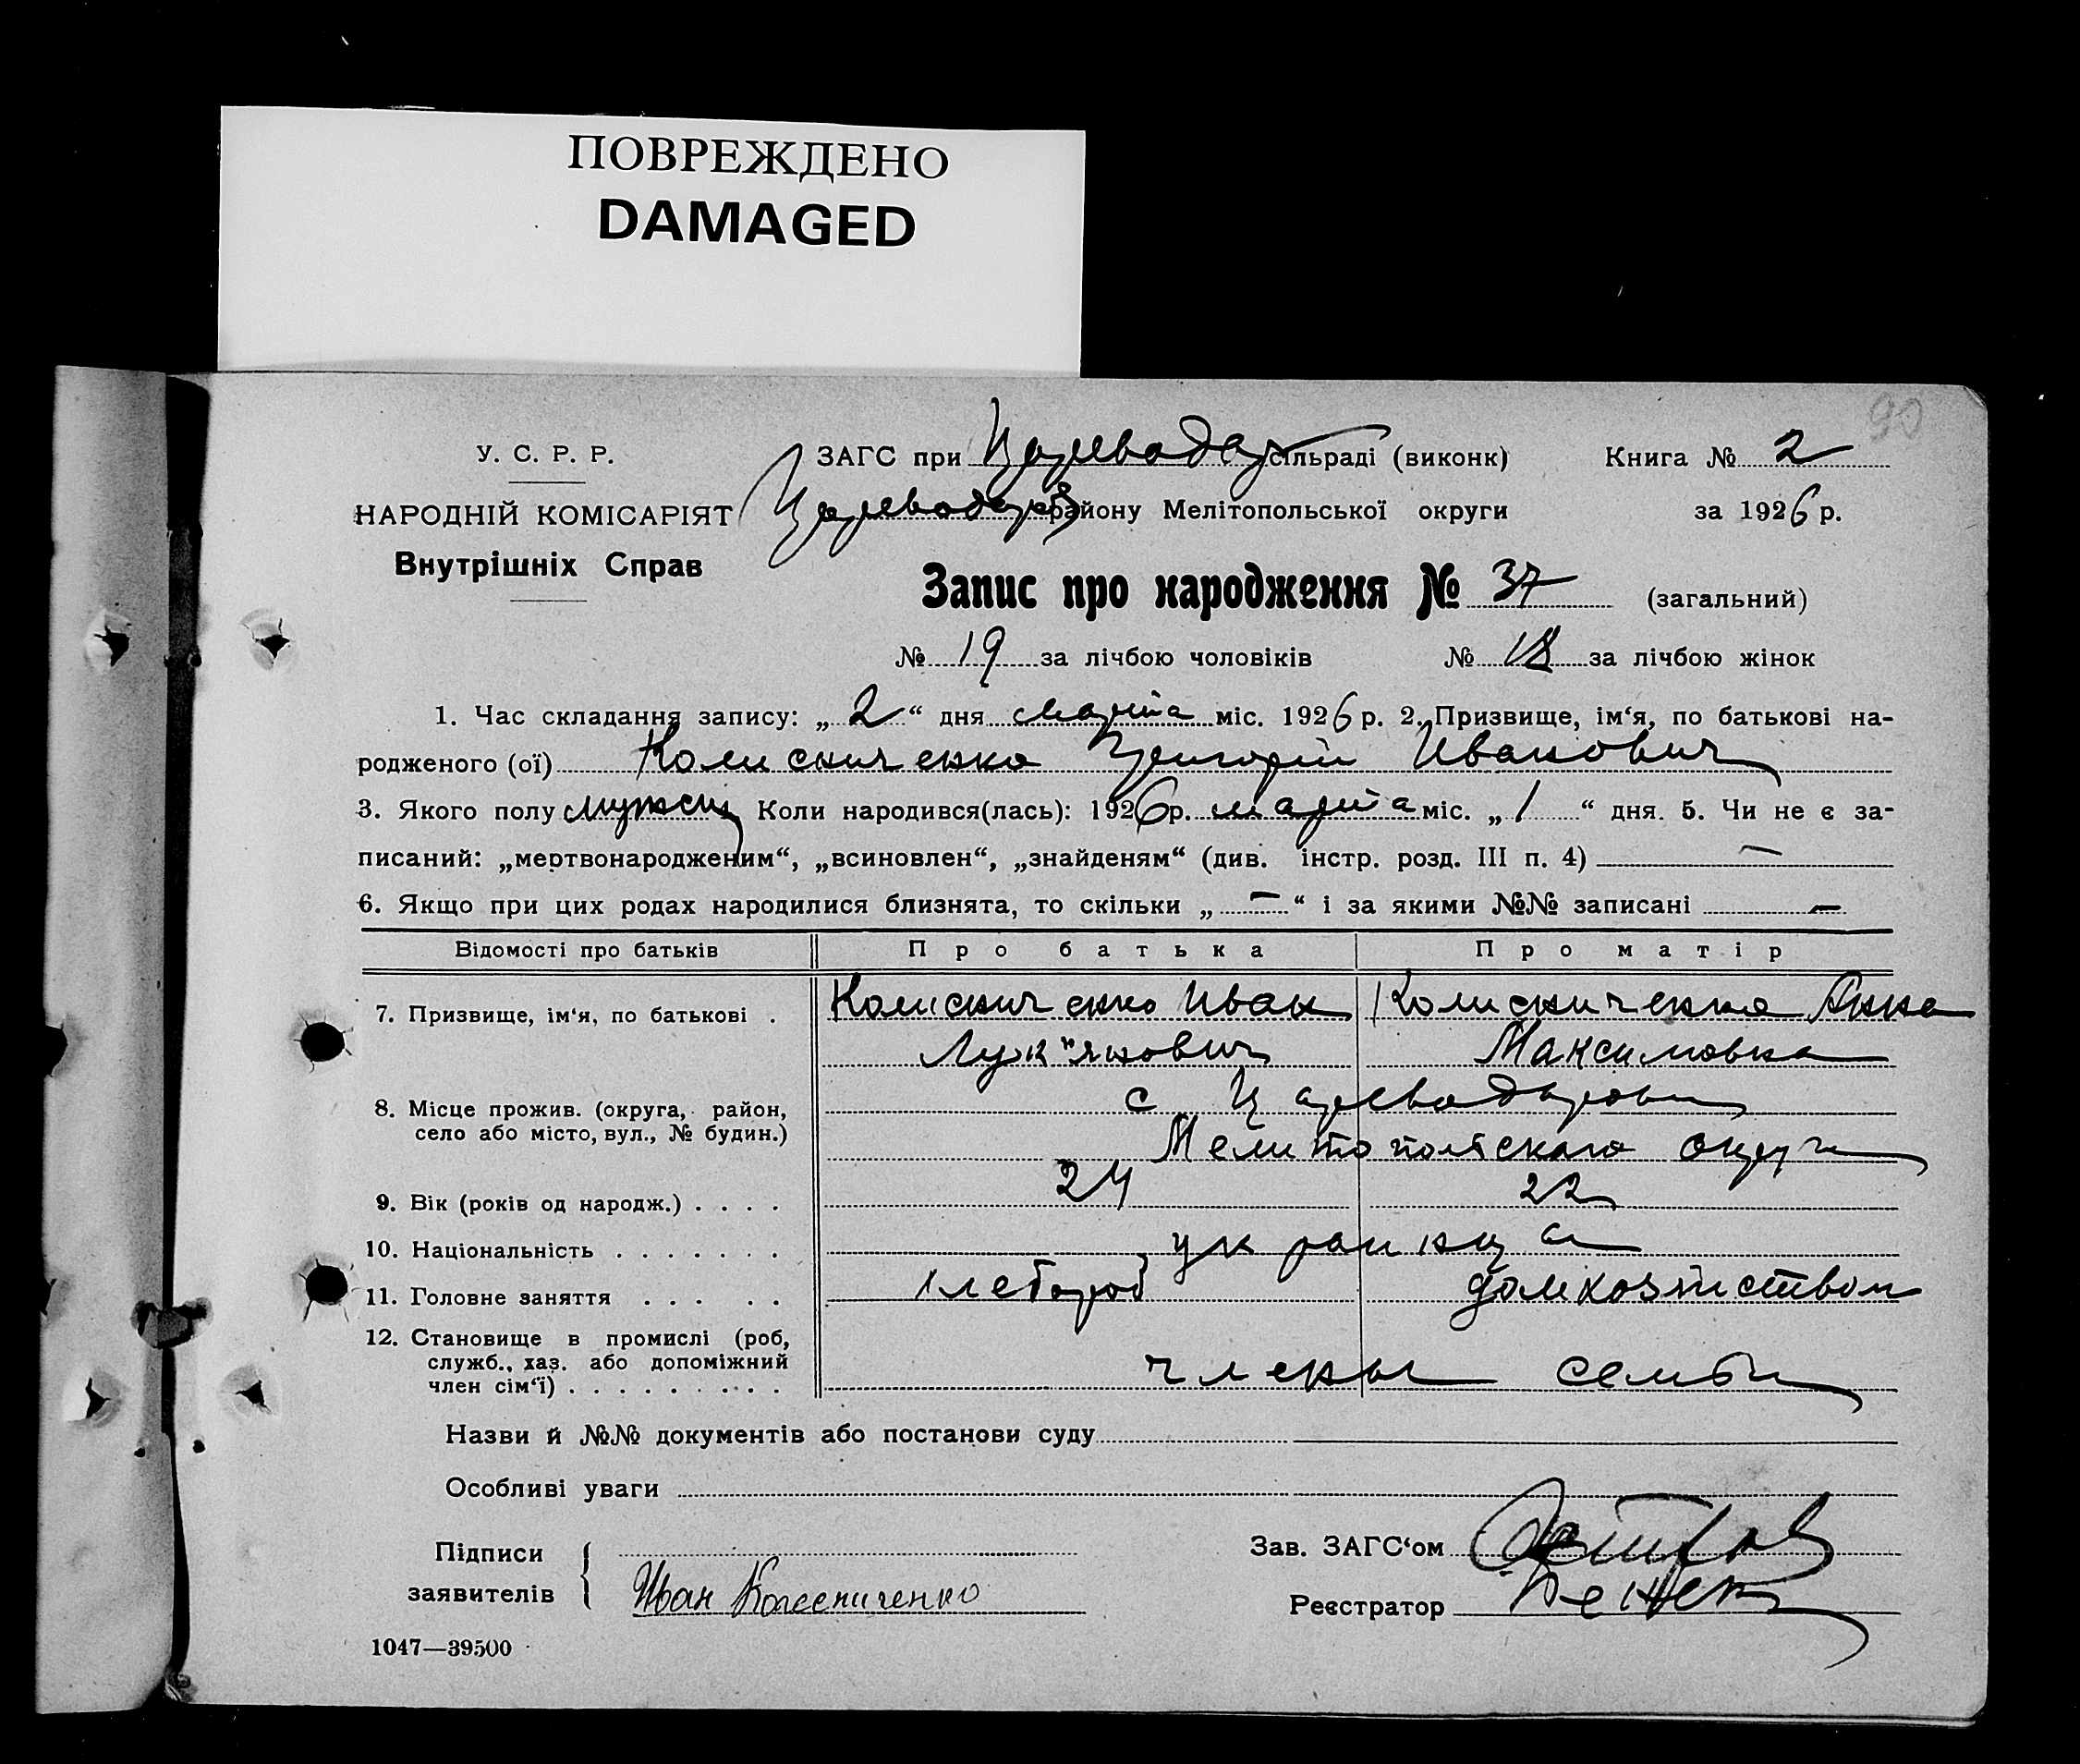 ПОВРЕЖДЕНО
DAMAGED
90
У. С. Р. Р.
НАРОДНІЙ КОМІСАРІЯТ
Внутрішніх Справ
ЗАГС при Цареводар сільраді (виконк) Книга № 2
Цареводар району Мелітопольської округи за 1926 р.
Запис про народження № 37 (загальний)
№ 19 за лічбою чоловіків № 18 за лічбою жінок
1. Час складання запису: „2“ дня марта міс. 1926 р. 2. Призвище, ім‘я, по батькові на-
родженого (ої) Колисниченко Григорій Иванович
3. Якого полу мужск Коли народився(лась): 1926 р. марта міс. „1“ дня. 5. Чи не є за-
писаний: „мертвонародженим“, „всиновлен“, „знайденям“ (див. інстр. розд. III п. 4) —
6. Якщо при цих родах народилися близнята, то скільки „—“ і за якими №№ записані —
Відомості про батьків Про батька Про матір
7. Призвище, ім‘я, по батькові . Колисниченко Иван Колисниченко Анна
Лук"янович Максимовна
8. Місце прожив. (округа, район, с Цареводаровки
село або місто, вул., № будин.) Мелитопольскаго округи
9. Вік (років од народж.) . . . . 24 22
10. Національність . . . . . . . украинца
11. Головне заняття . . . . . хлебороб домхозяйством
12. Становище в промислі (роб,
служб., хаз. або допоміжний
член сім‘ї) . . . . . . . . . члены семьи
Назви й №№ документів або постанови суду
Особливі уваги
Підписи
заявителів
Иван Колесниченко
Зав. ЗАГС‘ом
Реєстратор
1047—39500